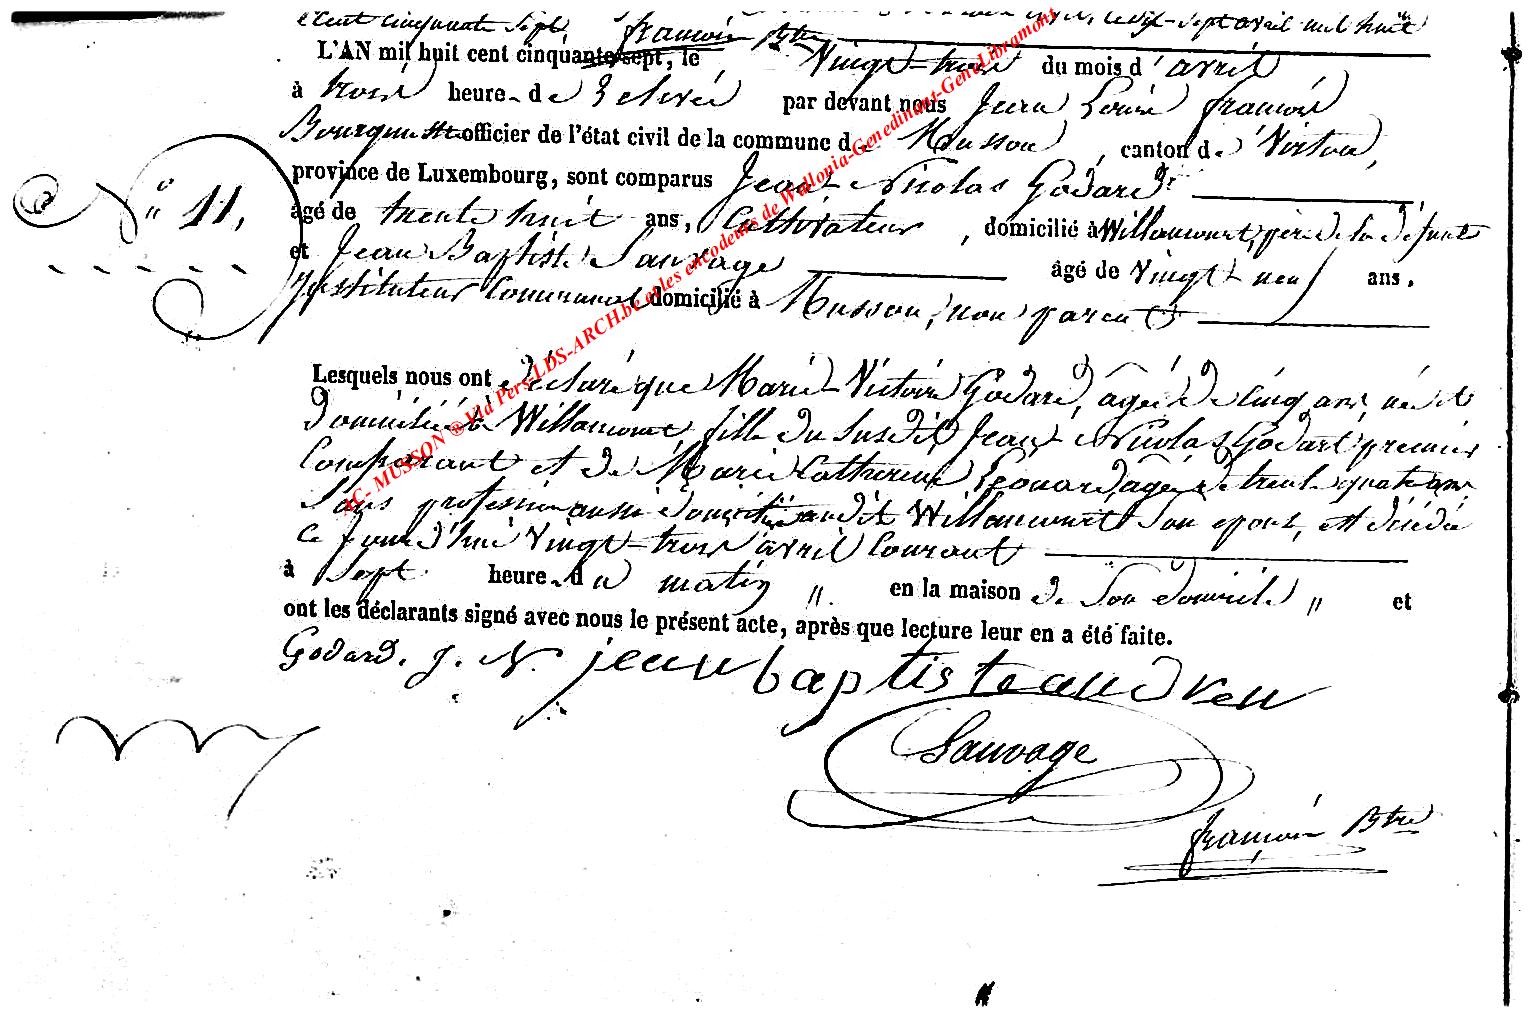 et cent cinquante sept, dix-sept avril mil huit
françois Btre
L'AN mil huit cent cinquante sept, le Vingt-trois du mois d'avril
à trois heure de relevée par devant nous Jean Louis françois
Bourguen officier de l'état civil de la commune de Musson, canton de Virton,
N° 11,
province de Luxembourg, sont comparus Jean Nicolas Godard
âgé de trente huit ans, Cultivateur, domicilié à Willancourt, père de la défunte
et Jean Baptiste Sauvage âgé de vingt-neuf ans.
Instituteur Communal domicilié à Musson, non parent
Lesquels nous ont déclaré que Marie-Victoire Godard, âgée de cinq ans, née et
domiciliée à Willancourt fille du susdit Jean Nicolas Godart premier
Comparant et de Marie Catherine Léonard, âgée de trente quatre ans
sans profession aussi domiciliée audit Willancourt son epouse, est décédée
Ce jourd'hui vingt-trois avril Courant
à sept heure du matin en la maison de son domicile et
ont les déclarants signé avec nous le présent acte, après que lecture leur en a été faite.
Godard. J. N. jean baptiste andreu
Sauvage
françois Btre
AC- MUSSON ® Via Pers-LDS-ARCH.be et les encodeurs de Wallonia-Genedinant-GeneLibramont